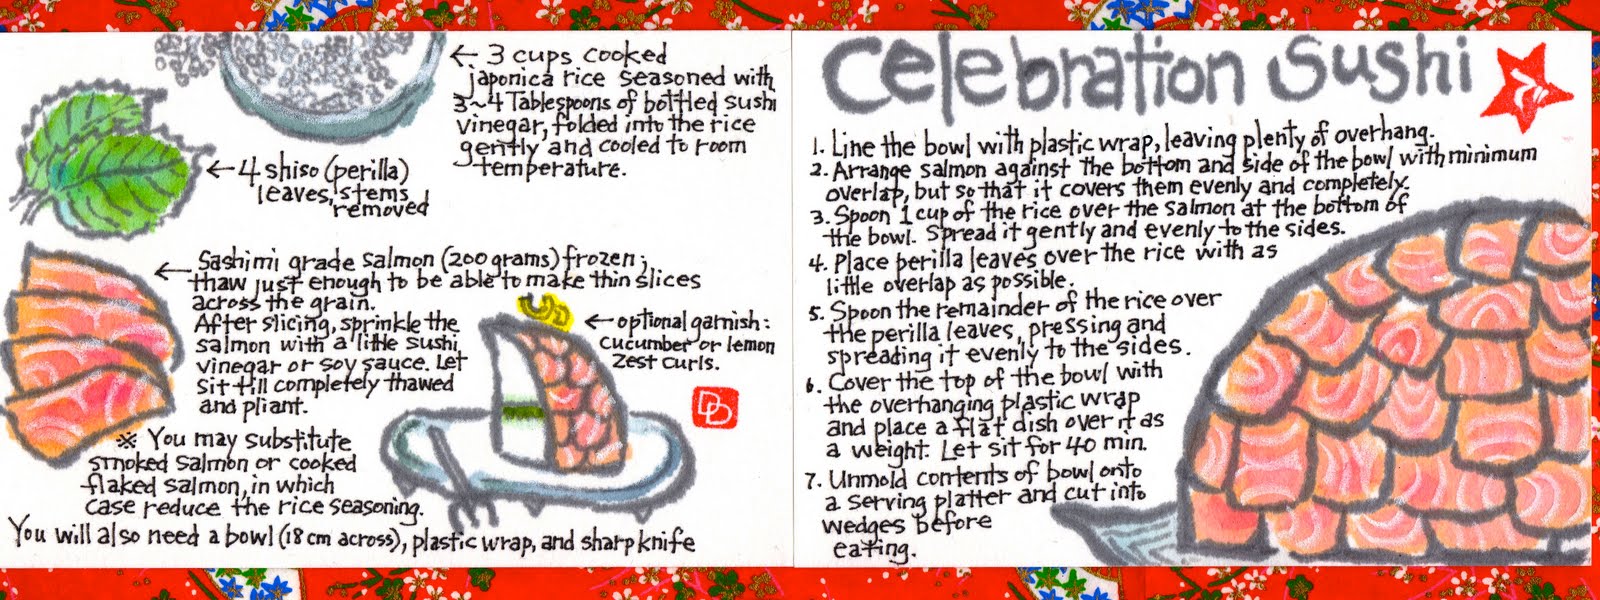 ← 3 cups cooked
japonica rice seasoned with
3~4 Tablespoons of bottled sushi
vinegar, folded into the rice
gently and cooled to room
temperature.
← 4 shiso (perilla)
leaves, stems
removed
← Sashimi grade salmon (200 grams) frozen;
thaw just enough to be able to make thin slices
across the grain.
After slicing, sprinkle the
salmon with a little sushi
vinegar or soy sauce. Let
sit till completely thawed
and pliant.
← optional garnish:
cucumber or lemon
zest curls.
DD
※ You may substitute
smoked salmon or cooked
flaked salmon, in which
case reduce the rice seasoning.
You will also need a bowl (18 cm across), plastic wrap, and sharp knife
Celebration Sushi
1. Line the bowl with plastic wrap, leaving plenty of overhang.
2. Arrange salmon against the bottom and side of the bowl with minimum
overlap, but so that it covers them evenly and completely.
3. Spoon 1 cup of the rice over the salmon at the bottom of
the bowl. Spread it gently and evenly to the sides.
4. Place perilla leaves over the rice with as
little overlap as possible.
5. Spoon the remainder of the rice over
the perilla leaves, pressing and
spreading it evenly to the sides.
6. Cover the top of the bowl with
the overhanging plastic wrap
and place a flat dish over it as
a weight. Let sit for 40 min.
7. Unmold contents of bowl onto
a serving platter and cut into
wedges before
eating.